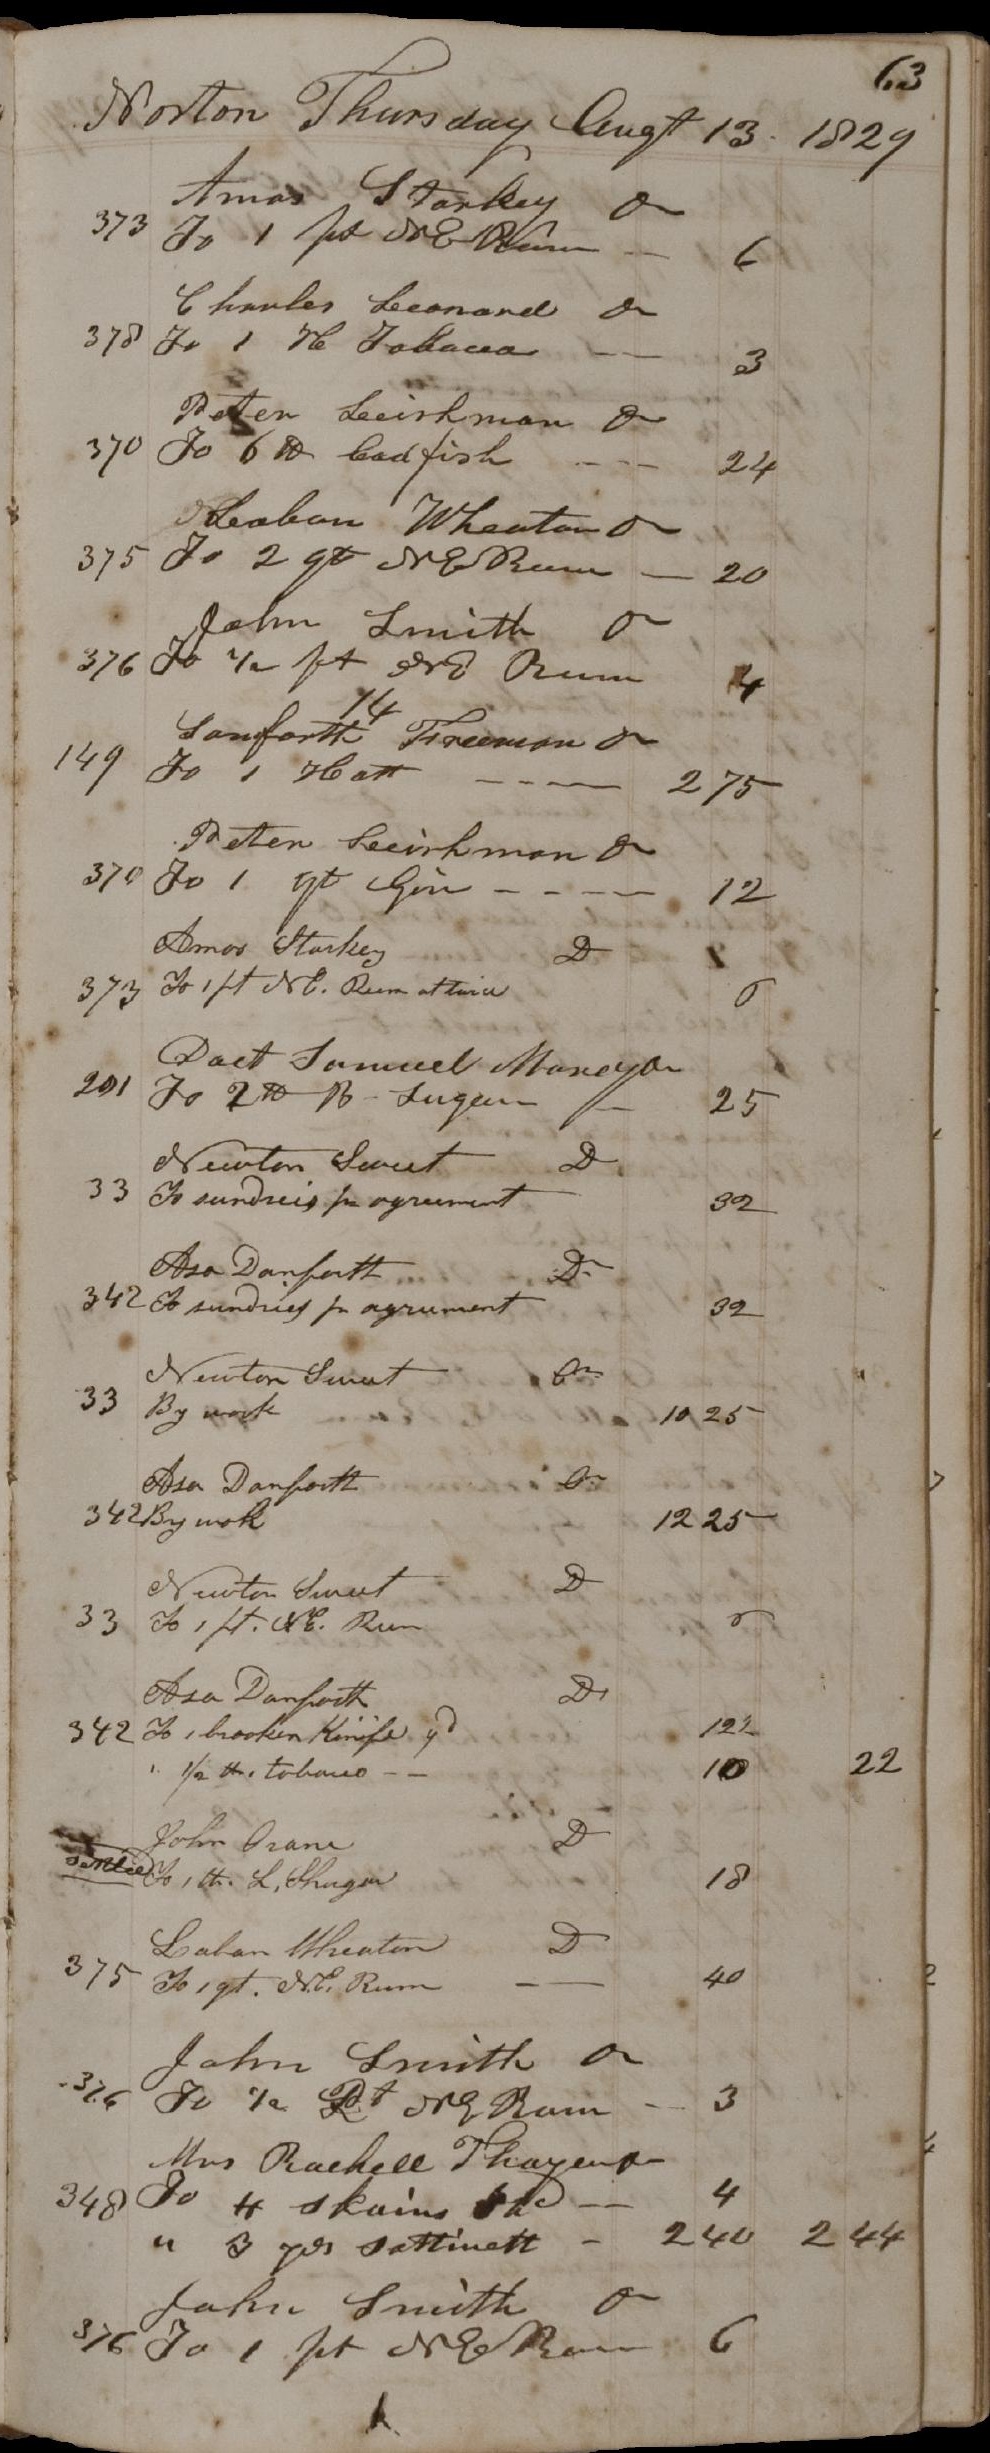 63
Norton Thursday Augt 13. 1829
Amos Starkey Dr
373 To 1 pt N E Rum — 6
Charles Leonard Dr
378 To 1 Tobacco — — 3
Peter Dr
370 To 6 lb Codfish - - - 24
Leaban Wheaton Dr
375 To 2 qt N E Rum — 20
John Smith Dr
376 To 1/2 pt N E Rum 4
14
Sanforth Freeman Dr
149 To 1 Hatt - - - - 2 75
Peter Dr
370 To 1 qt Gin - - - - 12
Amos Starkey D
373 To 1 pt N E. Rum at twice 6
Doct Samuel Morey Dr
201 To 2 lb B - Sugar — 25
Newton Sweet D
33 To sundreis pr agrument 32
Asa Danforth Dr
342 To sundries pr agrument 32
Newton Sweet Cr
33 By work 10 25
Asa Danforth Cr
342 By work 12 25
Newton Sweet D
33 To 1 pt. N E. Rum 6
Asa Danforth Dr
342 To 1 brooken Knife 12
" 1/2 lb. tobacco - - 10 22
John Crane D
settled To 1 lb. L. Shugar 18
Laban Wheaton D
375 To 1 qt. N.E. Rum — — 40
John Smith Dr
376 To 1/2 Pt N E Rum — 3
Mrs Rachell Thayer Dr
348 To 4 skains — 4
" 3 yds sattinett - 2 40 2 44
John Smith Dr
376 To 1 pt N E Rum 6